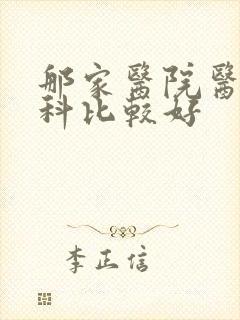 那家醫院醫
科比較好
李正信